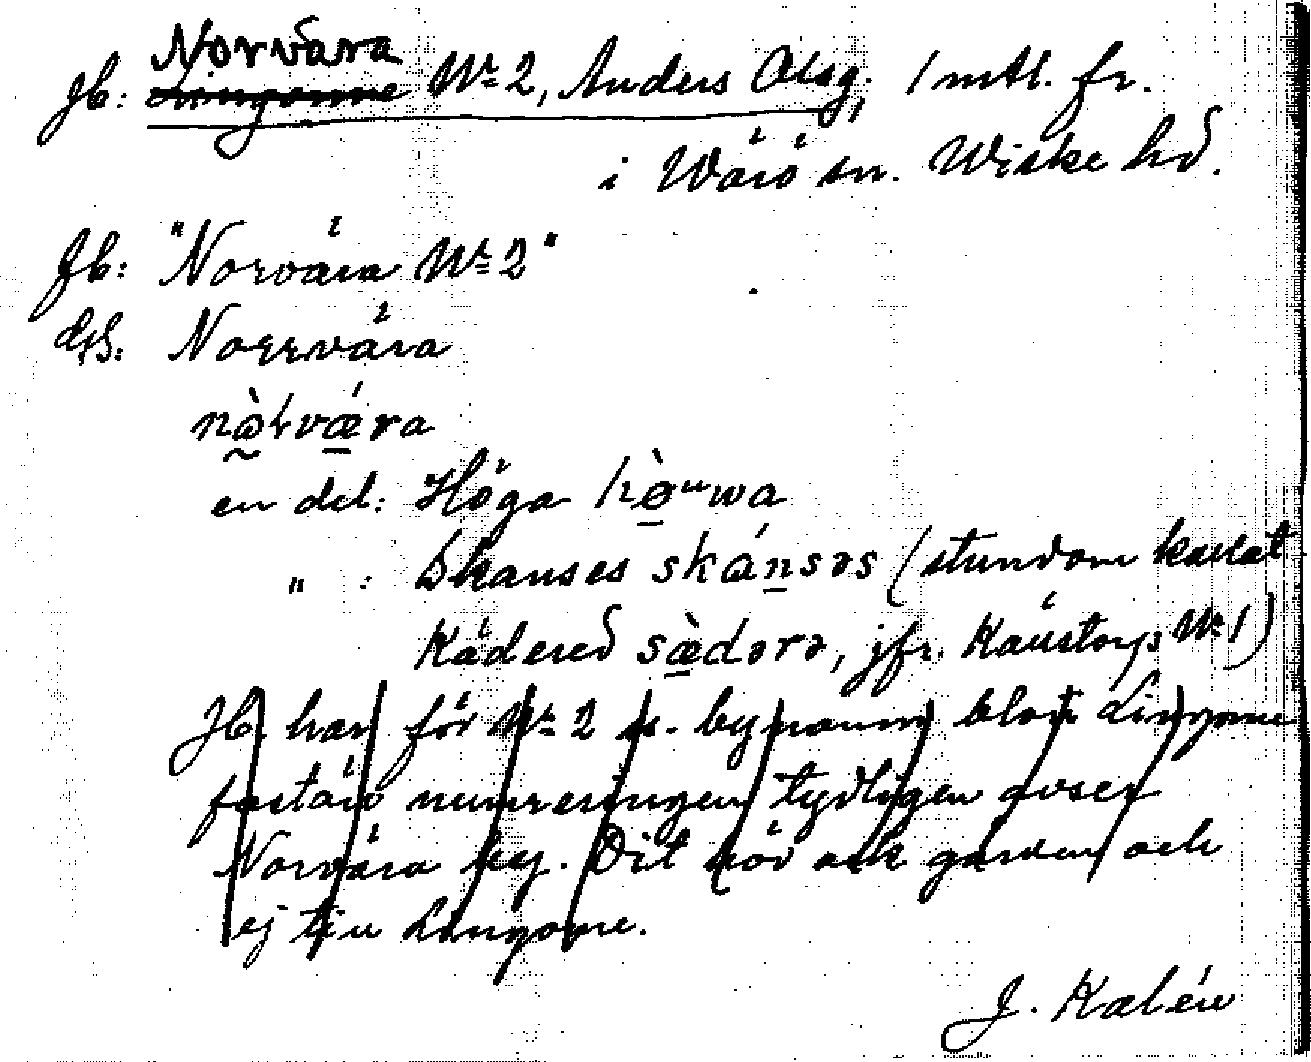 Norvära
Jb: Lingonne № 2, Anders Olsg, 1 mtl. fr.
i Värö sn. Wiske hd.
Jb: "Norvära № 2"
GB: Norrvära
nɷ̀ɫvǽra
en del: Höga hø̀ᵘwa
" : Skanses skánsəs (stundom kallat
Kädered sæ̀dərə, jfr. Kärstorp № 1)
Jb. har för № 2 s. bynamn blott Lingonne
fastän numreringen tydligen avser
Norvära by. Dit hör ock gården och
ej till Lingonne.
J. Kalén